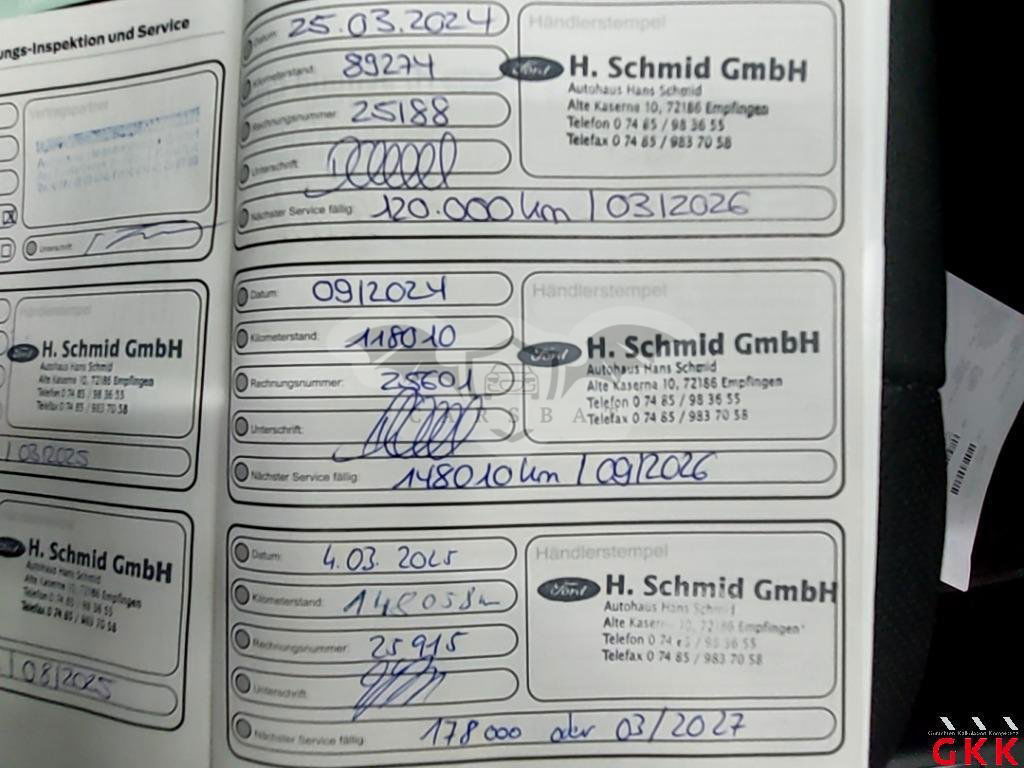 ungs-Inspektion und Service
Vertragspartner
Unterschrift:
Händlerstempel
Ford H. Schmid GmbH
Autohaus Hans Schmid
Alte Kaserne 10, 72186 Empfingen
Telefon 0 74 85 / 98 36 55
Telefax 0 74 85 / 983 70 58
/ 03/2025
H. Schmid GmbH
Autohaus Hans Schmid
Alte Kaserne 10, 72186 Empfingen
Telefon 0 74 85 / 98 36 55
Telefax 0 74 85 / 983 70 58
/ 08/2025
Datum: 25.03.2024
Kilometerstand: 89274
Rechnungsnummer: 25188
Unterschrift:
Händlerstempel
Ford H. Schmid GmbH
Autohaus Hans Schmid
Alte Kaserne 10, 72186 Empfingen
Telefon 0 74 85 / 98 36 55
Telefax 0 74 85 / 983 70 58
Nächster Service fällig: 120.000km / 03/2026
Datum: 09/2024
Kilometerstand: 118010
Rechnungsnummer: 25601
Unterschrift:
Händlerstempel
Ford H. Schmid GmbH
Autohaus Hans Schmid
Alte Kaserne 10, 72186 Empfingen
Telefon 0 74 85 / 98 36 55
Telefax 0 74 85 / 983 70 58
Nächster Service fällig: 148010km / 09/2026
Datum: 4.03. 2025
Kilometerstand: 148058
Rechnungsnummer: 25915
Unterschrift:
Händlerstempel
Ford H. Schmid GmbH
Autohaus Hans Schmid
Alte Kasern 10, 72186 Empfingen
Telefon 0 74 85 / 98 36 55
Telefax 0 74 85 / 983 70 58
Nächster Service fällig: 178000 oder 03/2027
Gutachten Kalkulation Kompetenz
GKK